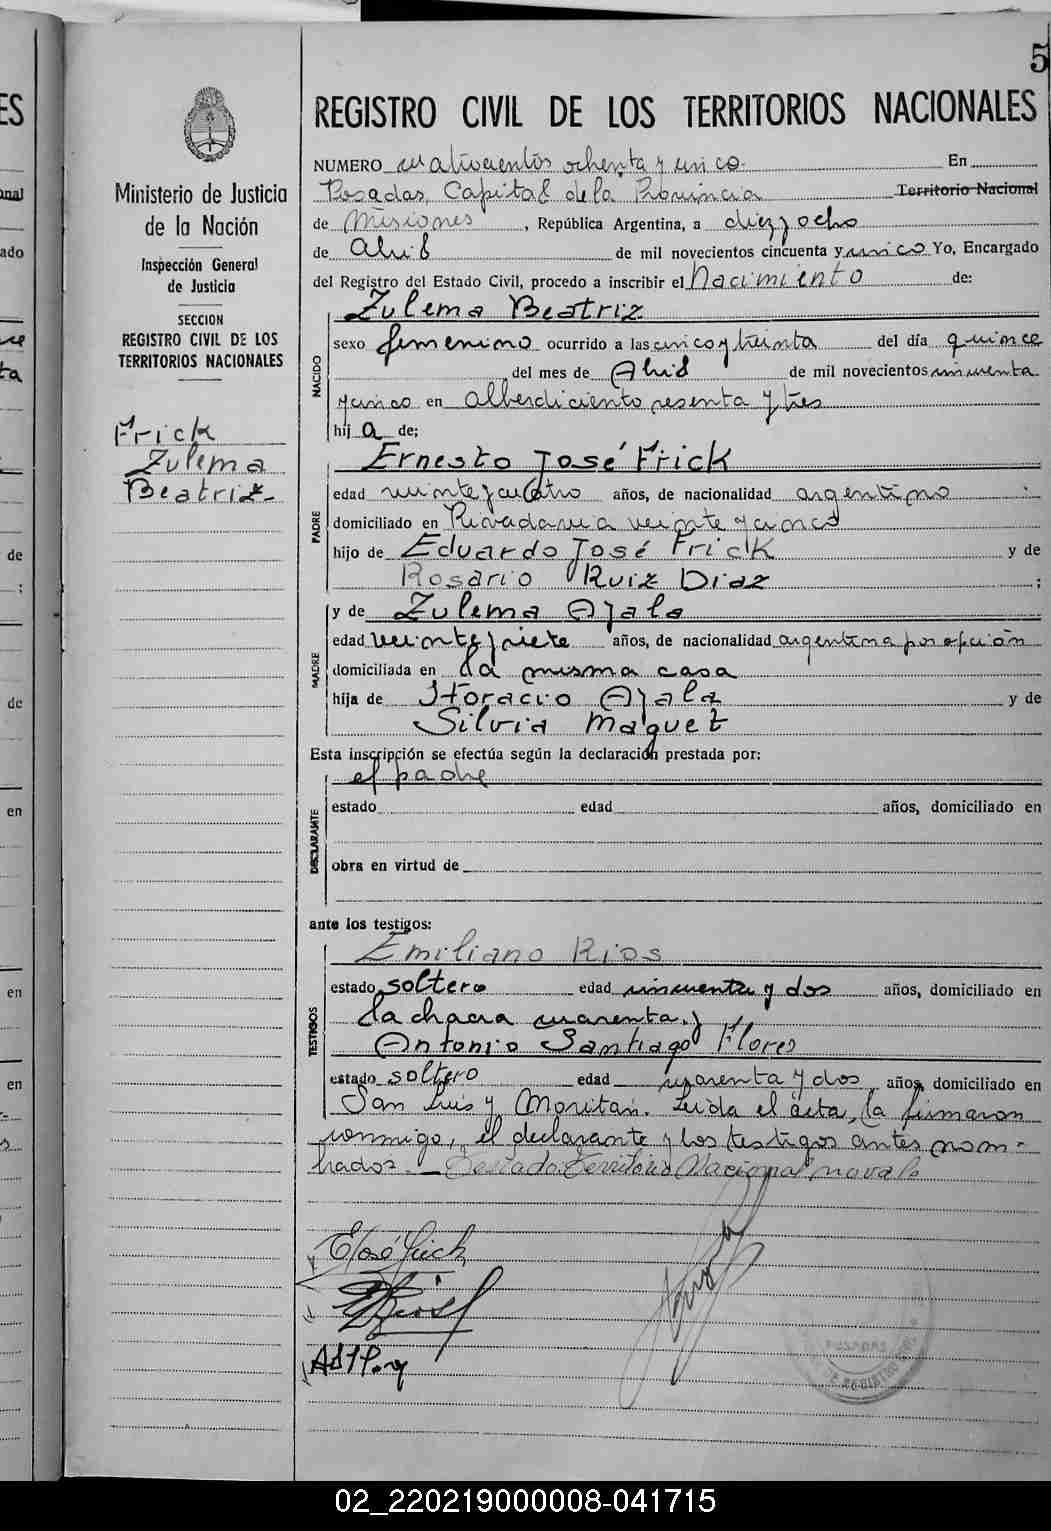 5
REGISTRO CIVIL DE LOS TERRITORIOS NACIONALES
Ministerio de Justicia
de la Nación
Inspección General
de Justicia
SECCION
REGISTRO CIVIL DE LOS
TERRITORIOS NACIONALES
Frick
Zulema
Beatriz
NUMERO cuatrocientos ochenta y cinco En
Posadas, Capital de la Provincia Territorio Nacional
de Misiones, República Argentina, a diez y ocho
de Abril de mil novecientos cincuenta y cinco Yo, Encargado
del Registro del Estado Civil, procedo a inscribir el Nacimiento de:
NACIDO
Zulema Beatriz
sexo femenino ocurrido a las cinco y treinta del día quince
del mes de Abril de mil novecientos cincuenta
y cinco en Alberdi ciento sesenta y tres
hij a de;
PADRE
Ernesto José Frick
edad veinte y cuatro años, de nacionalidad argentino ;
domiciliado en Rivadavia veinte y cinco
hijo de Eduardo José Frick y de
Rosario Ruiz Diaz ;
MADRE
y de Zulema Ayala
edad veinte y siete años, de nacionalidad argentina por opción
domiciliada en la misma casa
hija de Horacio Ayala y de
Silvia Maguet
Esta inscripción se efectúa según la declaración prestada por:
DECLARANTE
el padre
estado edad años, domiciliado en
obra en virtud de
ante los testigos:
TESTIGOS
Emiliano Rios
estado soltero edad cincuenta y dos años, domiciliado en
la chacra cuarenta y
Antonio Santiago Flores
estado soltero edad cuarenta y dos años, domiciliado en
San Luis y Moritan. Leida el acta, la firmaron
conmigo, el declarante y los testigos antes nom-
brados. — Testado: Territorio Nacional, no vale
E José Frick
02_220219000008-041715